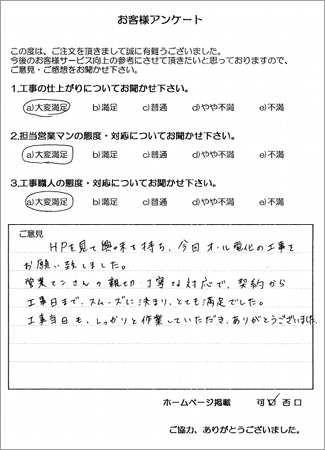 お客様アンケート
この度は、ご注文を頂きまして誠に有難うございました。
今後のお客様サービス向上の参考にさせて頂きたいと思っておりますので、
ご意見・ご感想をお聞かせ下さい。
1.工事の仕上がりについてお聞かせ下さい。
a)大変満足 b)満足 c)普通 d)やや不満 e)不満
2.担当営業マンの態度・対応についてお聞かせ下さい。
a)大変満足 b)満足 c)普通 d)やや不満 e)不満
3.工事職人の態度・対応についてお聞かせ下さい。
a)大変満足 b)満足 c)普通 d)やや不満 e)不満
ご意見
HPを見て興味を持ち、今回オール電化の工事を
お願い致しました。
営業マンさんの親切・丁寧な対応で、契約から
工事日まで、スムーズに決まり、とても満足でした。
工事当日も、しっかりと作業していただき、ありがとうございました。
ホームページ掲載 可☑ 否口
ご協力、ありがとうございました。